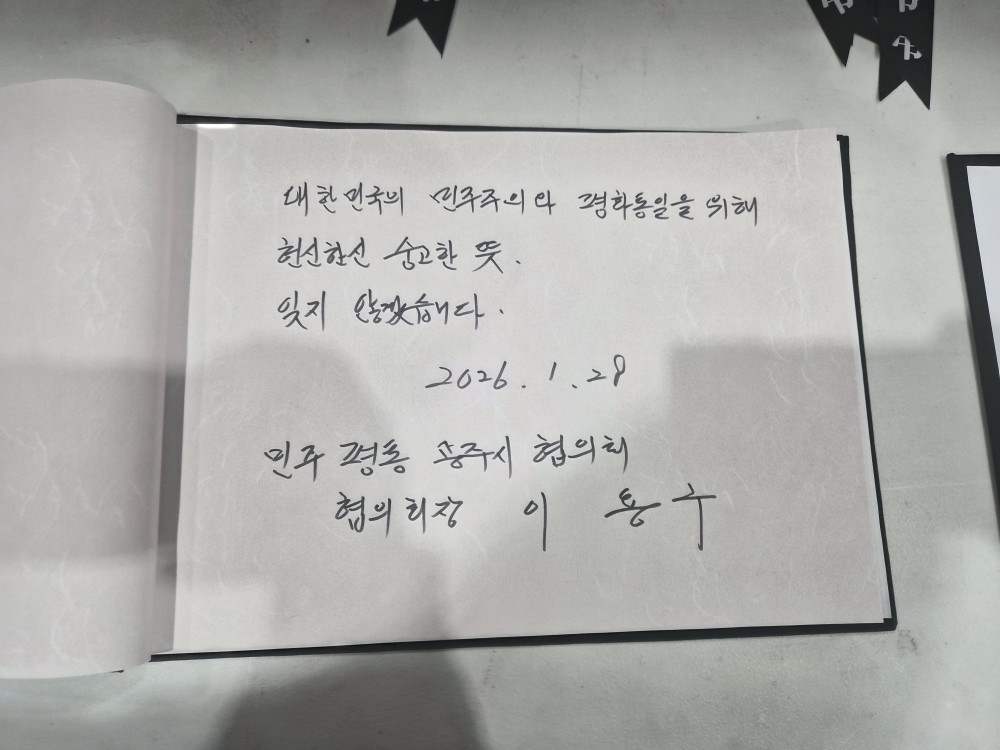 대한민국의 민주주의와 평화통일을 위해
헌신하신 숭고한 뜻.
잊지 않겠습니다.
2026. 1. 28
민주 평통 공주시 협의회
협의회장 이